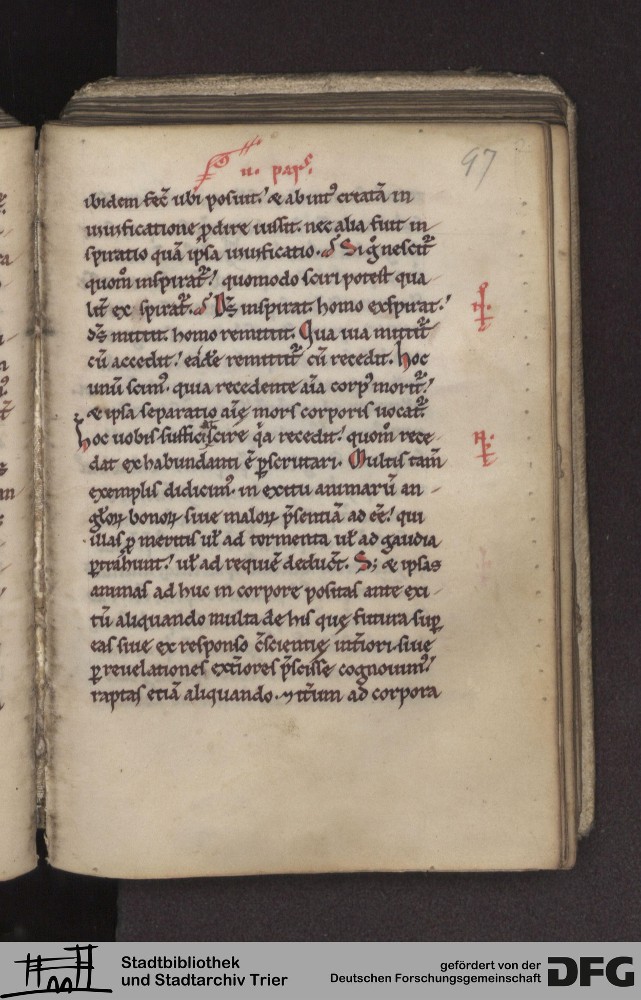 97
ii. pars.
ibidem fec̄ ubi posuit. & ab intus creatā in
uiuificatione ꝓdire iussit. nec alia fuit in
spiratio quā ipsa uiuificatio. Si ḡ nescit᷑
quom̄ inspirat᷑. quomodo sciri potest qua
lit̄ ex spirat᷑. Ds̄ inspirat. homo exspirat.
ds̄ mittit. homo remittit. Qua uia mittit᷑
cū accedit. eadē remittit᷑ cū recedit. hoc
unū scim᷒. quia recedente aīa corp᷒ morit᷑.
& ipsa separatio aīę mors corporis uocat᷑
hoc uobis sufficiat scire q̄a recedit. quom̄ rece-
dat ex habundanti ē ꝑscrutari. Multis tam̄
exemplis didicim᷒. in exitu animarū an-
gl̄oꝝ bonoꝝ siue maloꝝ p̄sentiā adee᷒. qui
illas ꝓ meritis ul̄ ad tormenta ul̄ ad gaudia
ꝑtrahunt. ul̄ ad requiē deduc̄t. S; & ipsas
animas ad huc in corpore positas ante exi-
tū aliquando multa de his quę futura sunt suꝑ
eas siue ex responso c̄scientię int̄iori siue
ꝑ reuelationes ext̄iores p̄scisse cognouim᷒.
raptas etiā aliquando. ⁊ it̄um ad corpora
Stadtbibliothek
und Stadtarchiv Trier
gefördert von der
Deutschen Forschungsgemeinschaft
DFG